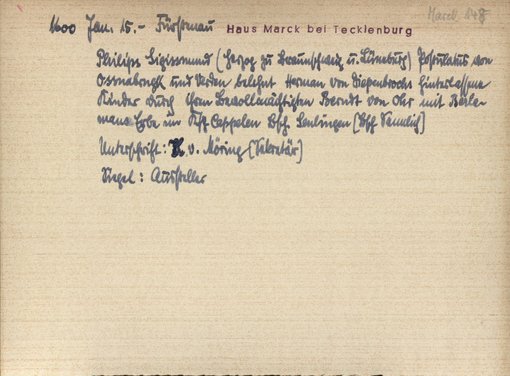 1600 Jan. 15.- Fürstenau Haus Marck bei Tecklenburg Marck
Philipp Sigissmund (Herzog zu Braunschweig u. Lüneburg) Postulatus von
Ossnabrugk und Verden belehnt Herman von Diepenbrochs hinterlassene
Kinder durch ihren Bevollmächtigten Berndt von Ohr mit
mans Erbe im Ksp. Cappelen Bsch. Senlingen (Bsch.
Unterschrift: v. Möring (Sekretär)
Siegel: Aussteller